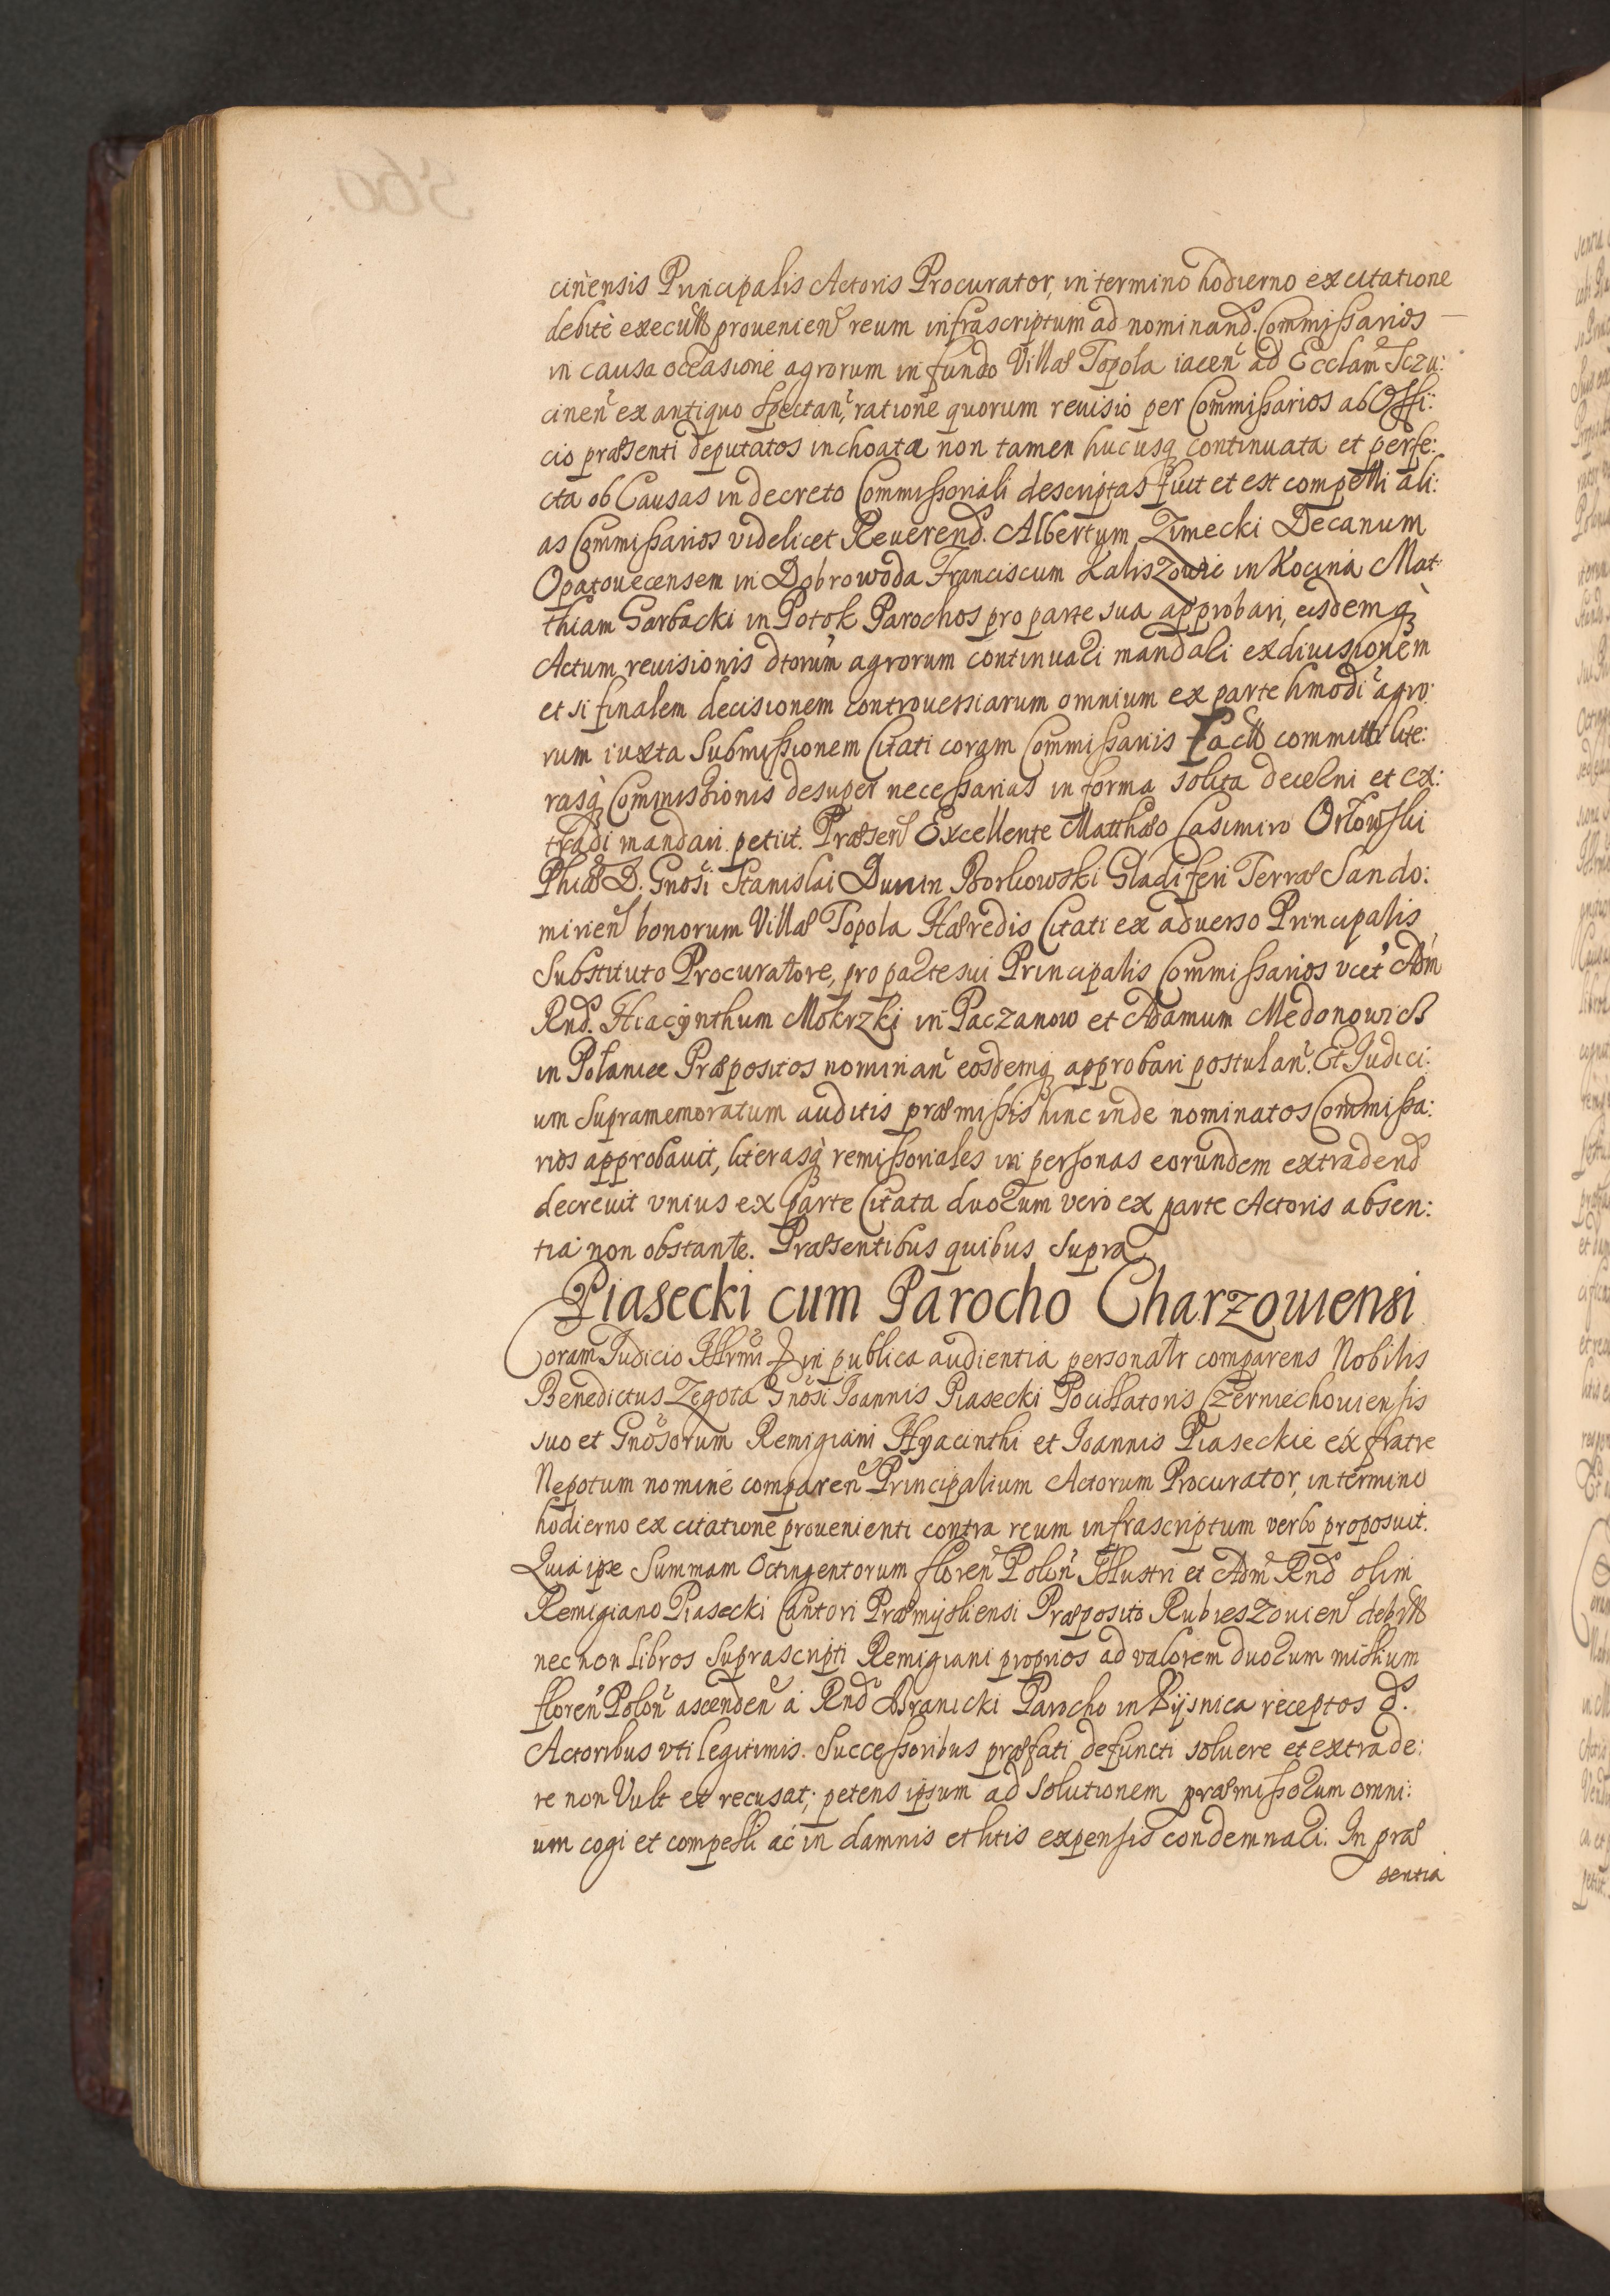 cinensis Principalis Actoris Procurator, in termino hodierno ex citatione
debitè execut. provenien̄ reum infrascriptum ad nominand. Commissarios —
in causa occasione agrorum in fundo Villæ Topola iacen̄ ad Ecclam Sczu:
cinen̄ ex antiquo spectan̄, ratione quorum reuisio per Commissarios ab Offi:
cio præsenti deputatos inchoata non tamen hucusq continuata et perfe:
cta ob Causas in decreto Commissoriali descriptas fuit et est compelli ali:
as Commissarios videlicet Reuerend. Albertum Zimecki Decanum
Opatouecensem in Dobrowoda Franciscum Kaliszowic in Kocina Mat:
thiam Garbacki in Potok Parochos pro parte sua approbari, eisdemq
Actum reuisionis dtorum agrorum continuari mandari ex diuisionem
et si finalem decisionem controuersiarum omnium ex parte hmodi agro:
rum iuxta submissionem Citati coram Commissariis committi lite:
rasq Commissionis desuper necessarias in forma solita decerni et ex:
tradi mandari petiit. Præsen̄ Excellente Matthæo Casimiro Orłowski
Phiæ D. Gnosi Stanislai Dunin Borkowski Gladiferi Terræ Sando:
mirien̄ bonorum Villæ Topola Hæredis Citati ex aduerso Principalis
Substituto Procuratore, pro parte sui Principalis Commissarios vcet Adm
Rnd. Hiacynthum Mokrzki in Paczanow et Adamum Medonowicz
in Połaniec Præpositos nominan̄ eosdemq approbari postulan̄. Et Judici:
um supramemoratum auditis præmissis hinc inde nominatos Commissa:
rios approbauit, literasq remissoriales in personas eorundem extradend
decreuit vnius ex parte Citata duorum vero ex parte Actoris absen:
tia non obstante. Præsentibus quibus supra
Piasecki cum Parocho Charzouiensi
Coram Judicio Illrmi in publica audientia personalr comparens Nobilis
Benedictus Zegota Gnosi Joannis Piasecki Pocillatoris Czerniechouiensis
suo et Gnosorum Remigiani Hyacinthi et Joannis Piaseckie ex fratre
Nepotum nomine comparen̄ Principalium Actorum Procurator, in termino
hodierno ex citatione prouenienti contra reum infrascriptum verbo proposuit.
Quia ipse Summam Octingentorum floren̄ Polon̄ Illustri et Adm Rnd olim
Remigiano Piasecki Cantori Præmysliensi Præposito Rubieszouien̄ debit.
nec non Libros suprascripti Remigiani proprios ad valorem duorum millium
floren̄ Polon̄ ascenden̄ a Rnd Branicki Parocho in Bijsnica receptos d.
Actoribus vti legitimis Successoribus præfati defuncti soluere et extrade:
re non Vult et recusat; petens ipsum ad solutionem præmissorum omni:
um cogi et compelli ac in damnis et litis expensis condemnari. In præ
sentia